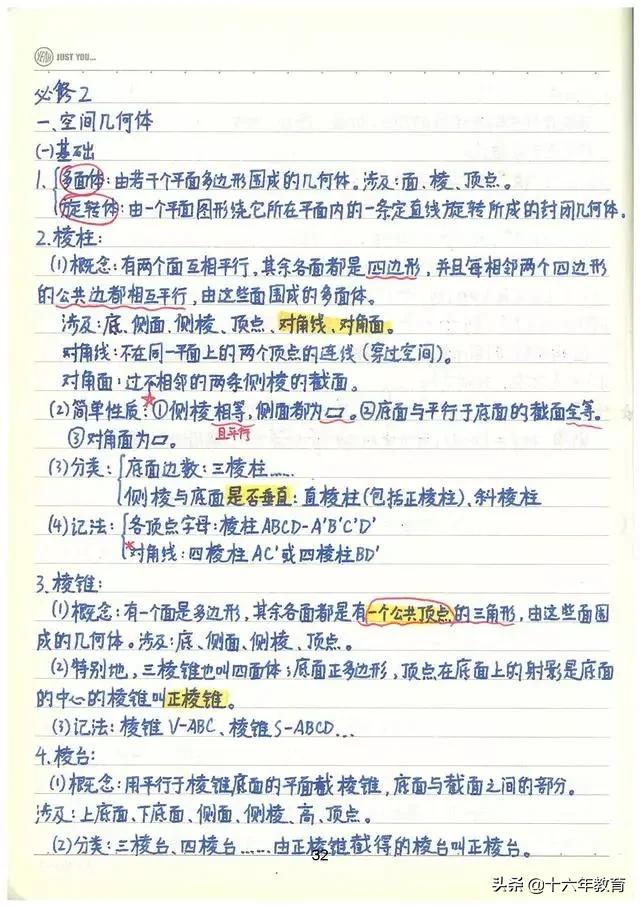 YEAH JUST YOU...
必修2
一、空间几何体
(一)基础
1. 多面体:由若干个平面多边形围成的几何体。涉及:面、棱、顶点。
旋转体:由一个平面图形绕它所在平面内的一条定直线旋转所成的封闭几何体。
2.棱柱:
(1)概念:有两个面互相平行,其余各面都是四边形,并且每相邻两个四边形
的公共边都相互平行,由这些面围成的多面体。
涉及:底、侧面、侧棱、顶点、对角线、对角面。
对角线:不在同一平面上的两个顶点的连线(穿过空间)。
对角面:过不相邻的两条侧棱的截面。
(2)简单性质:①侧棱相等,侧面都为▱。②底面与平行于底面的截面全等。
且平行
③对角面为▱。
(3)分类:底面边数:三棱柱……
侧棱与底面是否垂直:直棱柱(包括正棱柱)、斜棱柱
(4)记法:各顶点字母:棱柱ABCD-A'B'C'D'
对角线:四棱柱AC'或四棱柱BD'
3.棱锥:
(1)概念:有一个面是多边形,其余各面都是有一个公共顶点的三角形,由这些面围
成的几何体。涉及:底、侧面、侧棱、顶点。
(2)特别地,三棱锥也叫四面体;底面正多边形,顶点在底面上的射影是底面
的中心的棱锥叫正棱锥。
(3)记法:棱锥V-ABC、棱锥S-ABCD...
4.棱台:
(1)概念:用平行于棱锥底面的平面截棱锥,底面与截面之间的部分。
涉及:上底面、下底面、侧面、侧棱、高、顶点。
(2)分类:三棱台、四棱台……由正棱锥截得的棱台叫正棱台。
32
头条@十六年教育